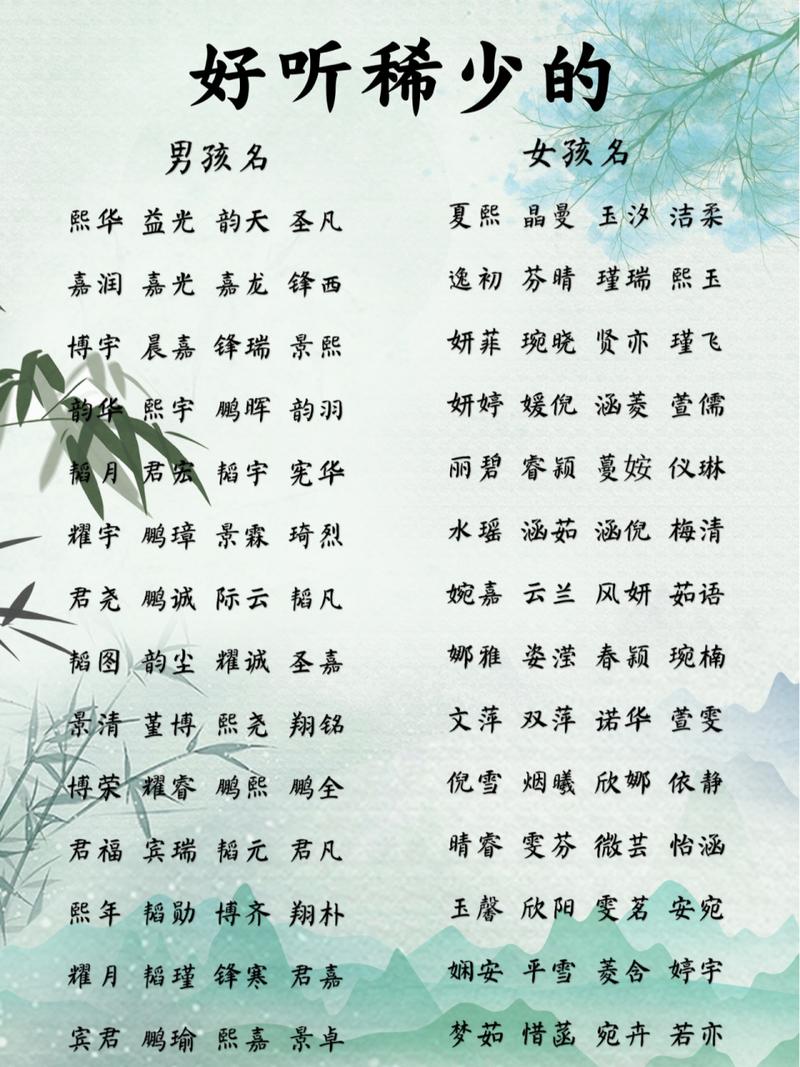 好听稀少的
男孩名
熙华 益光 韵天 圣凡
嘉润 嘉光 嘉龙 锋西
博宇 晨嘉 锋瑞 景熙
韵华 熙宇 鹏晖 韵羽
韬月 君宏 韬宇 宪华
耀宇 鹏璋 景霖 琦烈
君尧 鹏诚 际云 韬凡
韬图 韵尘 耀诚 圣嘉
景清 堇博 熙尧 翔铭
博荣 耀睿 鹏熙 鹏全
君福 宾瑞 韬元 君凡
熙年 韬勋 博齐 翔朴
耀月 韬瑾 锋寒 君嘉
宾君 鹏瑜 熙嘉 景卓
女孩名
夏熙 晶曼 玉汐 洁柔
逸初 芬晴 瑾瑞 熙玉
妍菲 琬晓 贤亦 瑾飞
妍婷 媛倪 涵菱 萱儒
丽碧 睿颖 蔓姲 仪琳
水瑶 涵茹 涵倪 梅清
婉嘉 云兰 风妍 茹语
娜雅 姿滢 春颖 琬楠
文萍 双萍 诺华 萱雯
倪雪 烟曦 欣娜 依静
晴睿 雯芬 微芸 怡涵
玉馨 欣阳 雯茗 安宛
娴安 平雪 菱含 婷宇
梦茹 惜菡 宛卉 若亦